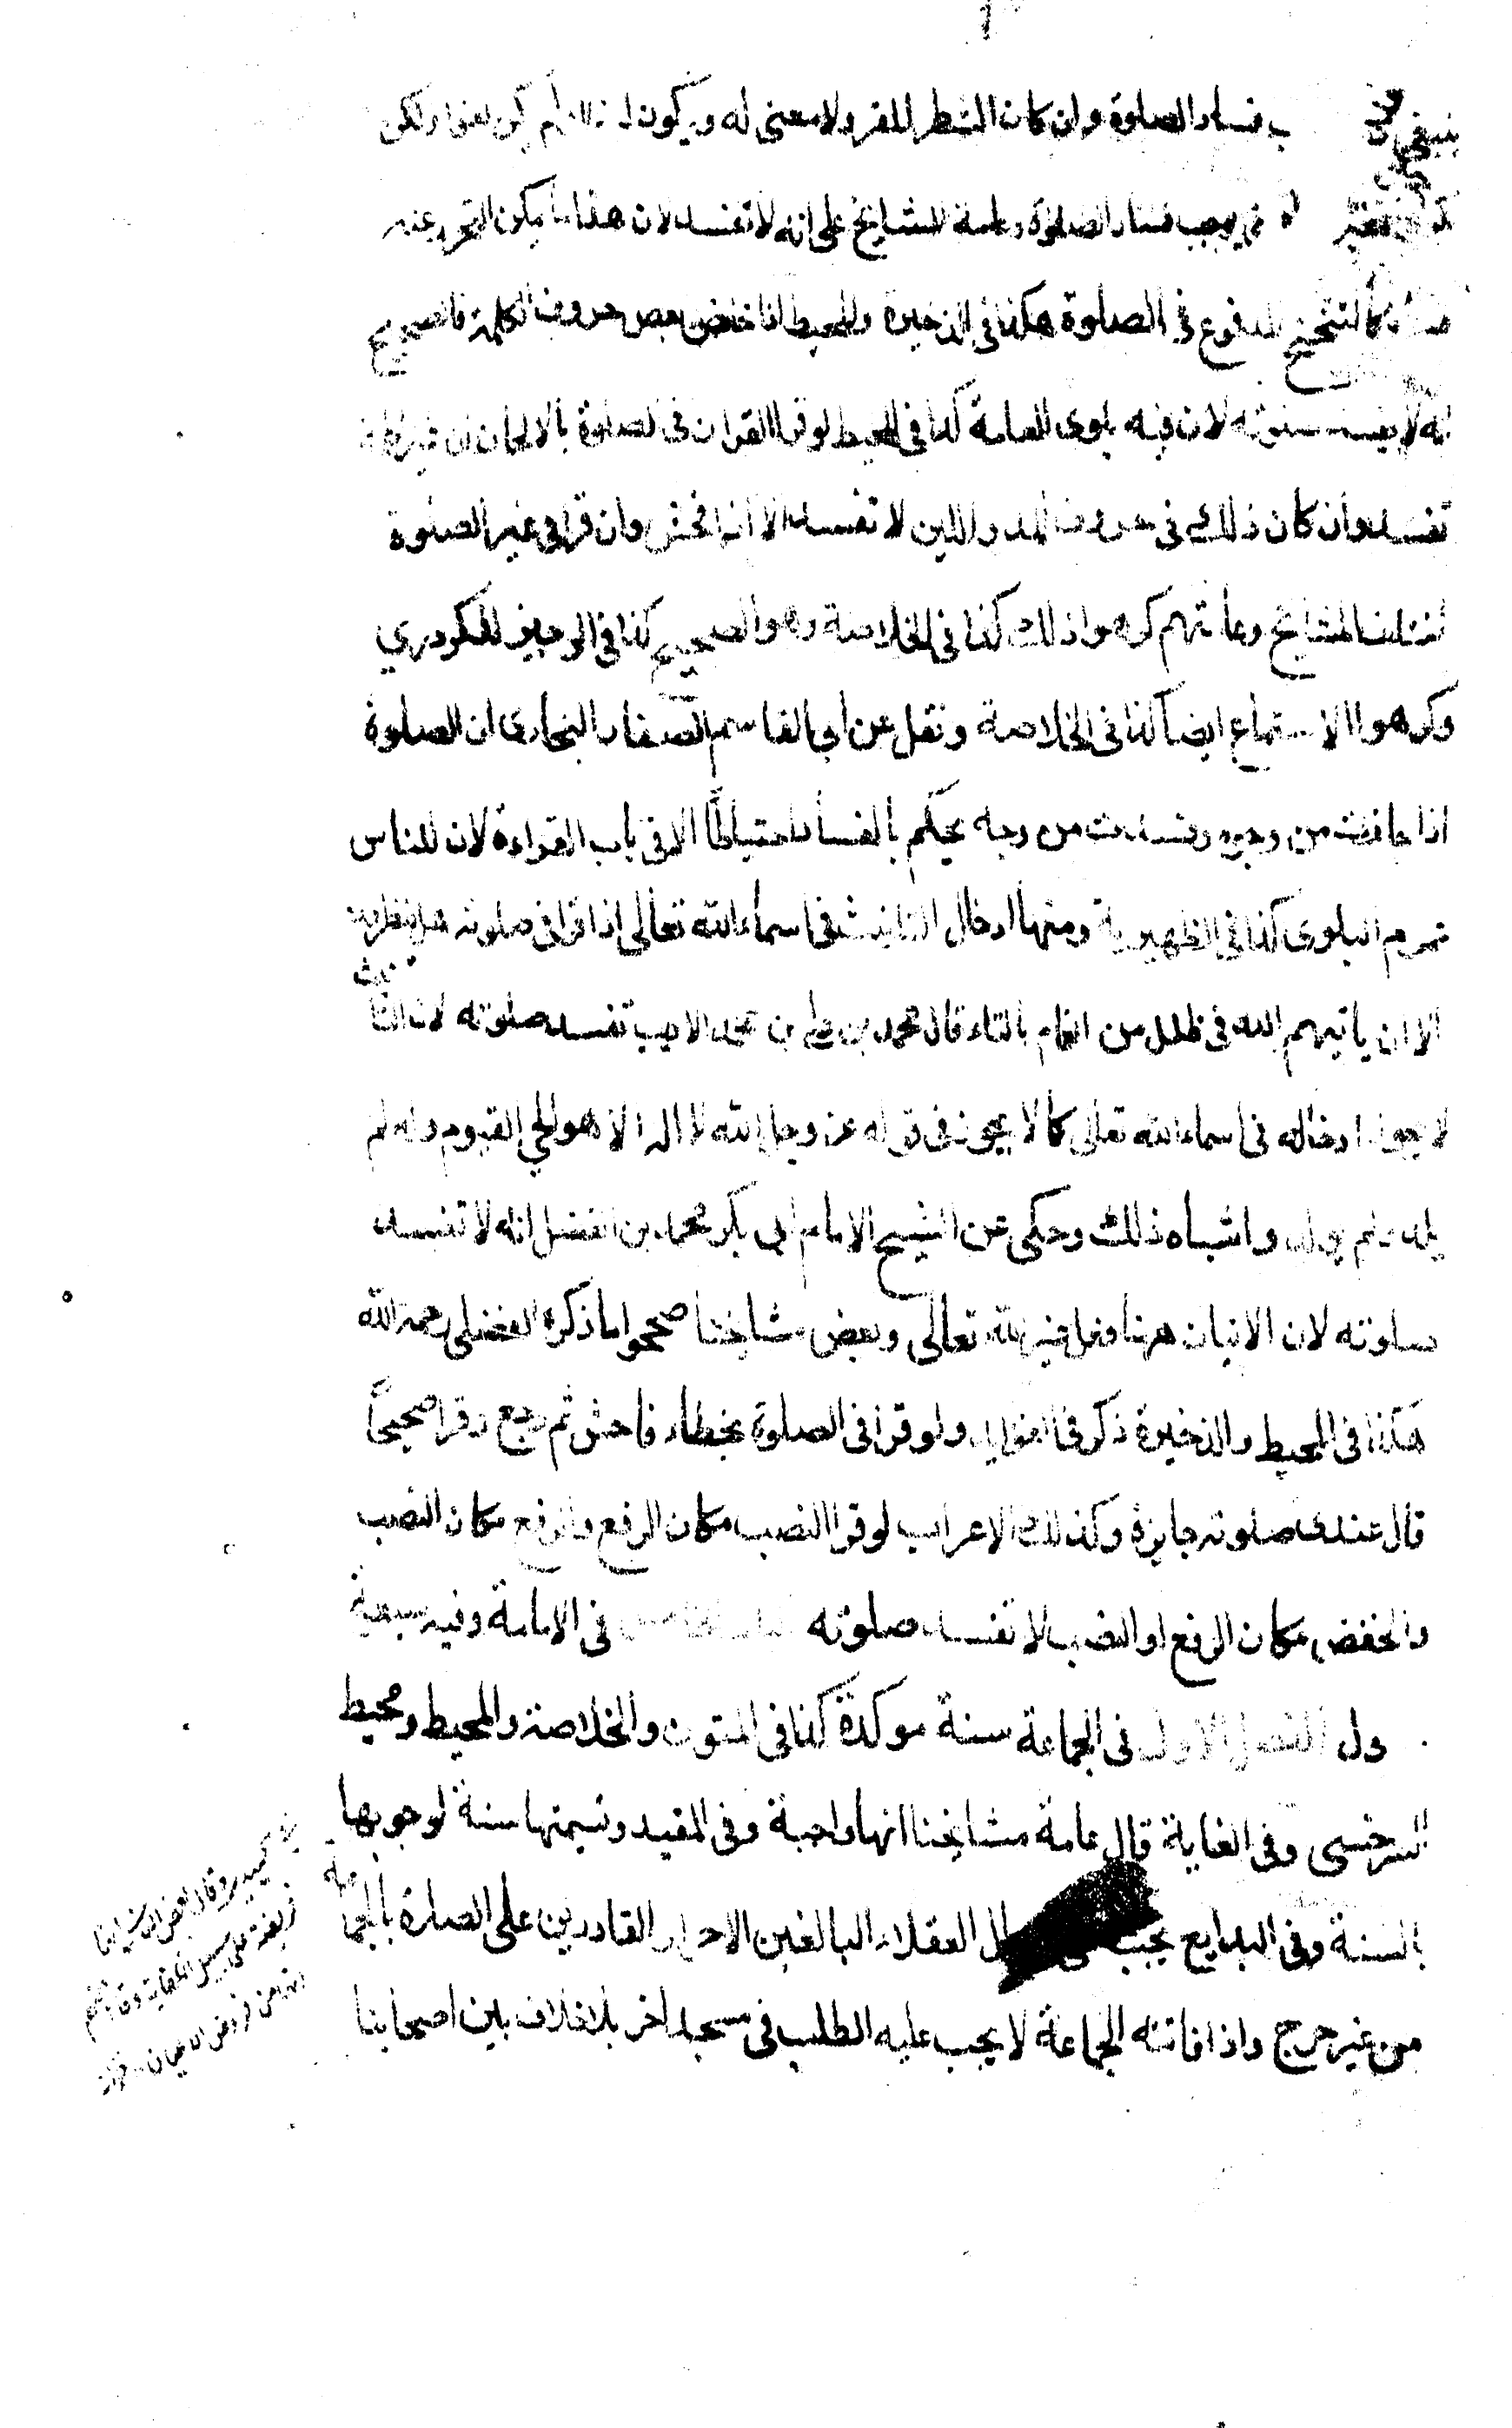 ينبغي ان يوجب فساد الصلوة وان كان الشطر المقروء لا معنى له ويكون لغوا ولكن
يوجب فساد الصلوة وعامة المشايخ على انه لا تفسد لان هذا مما لا يمكن التحرز عنه
كالتنحنح المدفوع في الصلوة هكذا في الذخيرة والمحيط اذا خفض بعض حروف الكلمة فالصحيح
انه لا يفسد صلوته لان فيه بلوى العامة كذا في المحيط لو قرا القران في الصلوة بالالحان ان غير الكلمة
تفسد وان كان ذلك في حروف المد واللين لا تفسد الا اذا فحش وان قرا في غير الصلوة
اختلف المشايخ وعامتهم كرهوا ذلك كذا في الخلاصة وهو الصحيح كذا في الوجيز للكردري
وكرهوا الاستماع ايضا كذا في الخلاصة ونقل عن ابي القاسم الصفار البخاري ان الصلوة
اذا جازت من وجوه وفسدت من وجه يحكم بالفساد احتياطًا الا في باب القراءة لان للناس
عموم البلوى كذا في الظهيرية ومنها ادخال التانيث في اسماء الله تعالى اذا قرا في صلوته هل ينظرون
الا ان ياتيهم الله في ظلل من الغمام بالتاء قال محمد بن علي بن محمد الاديب تفسد صلوته لان التانيث
لا يجوز ادخاله في اسماء الله تعالى كما لا يجوز في قوله عز وجل الله لا اله الا هو الحي القيوم وله لم
يلد ولم يولد واشباه ذلك وحكى عن الشيخ الامام ابي بكر محمد بن الفضل انه لا تفسد
صلوته لان الاتيان ههنا فعل غير الله تعالى وبعض مشايخنا صححوا ما ذكره الفضلي رحمه الله
هكذا في المحيط والذخيرة ذكر في الفوايد ولو قرا في الصلوة بخطاء فاحش ثم رجع وقرا صحيحًا
قال عندى صلوته جايزة وكذلك الاعراب لو قرا النصب مكان الرفع والرفع مكان النصب
والخفض مكان الرفع او النصب لا تفسد صلوته الباب الخامس في الامامة وفيه سبعة
ول الفصل الاول في الجماعة سنة موكدة كذا في المتون والخلاصة والمحيط ومحيط
السرخسى وفي الغاية قال عامة مشايخنا انها واجبة وفي المفيد وتسميتها سنة لوجوبها
بالسنة وفي البدايع يجب على ال العقلاء البالغين الاحرار القادرين على الصلوة بالجماعة
من غير حرج واذا فاتته الجماعة لا يجب عليه الطلب في مسجد اخر بلا خلاف بين اصحابنا
وقال بعض
فريضة على سبيل الكفاية وقال بعضهم
انها من فروض الاعيان